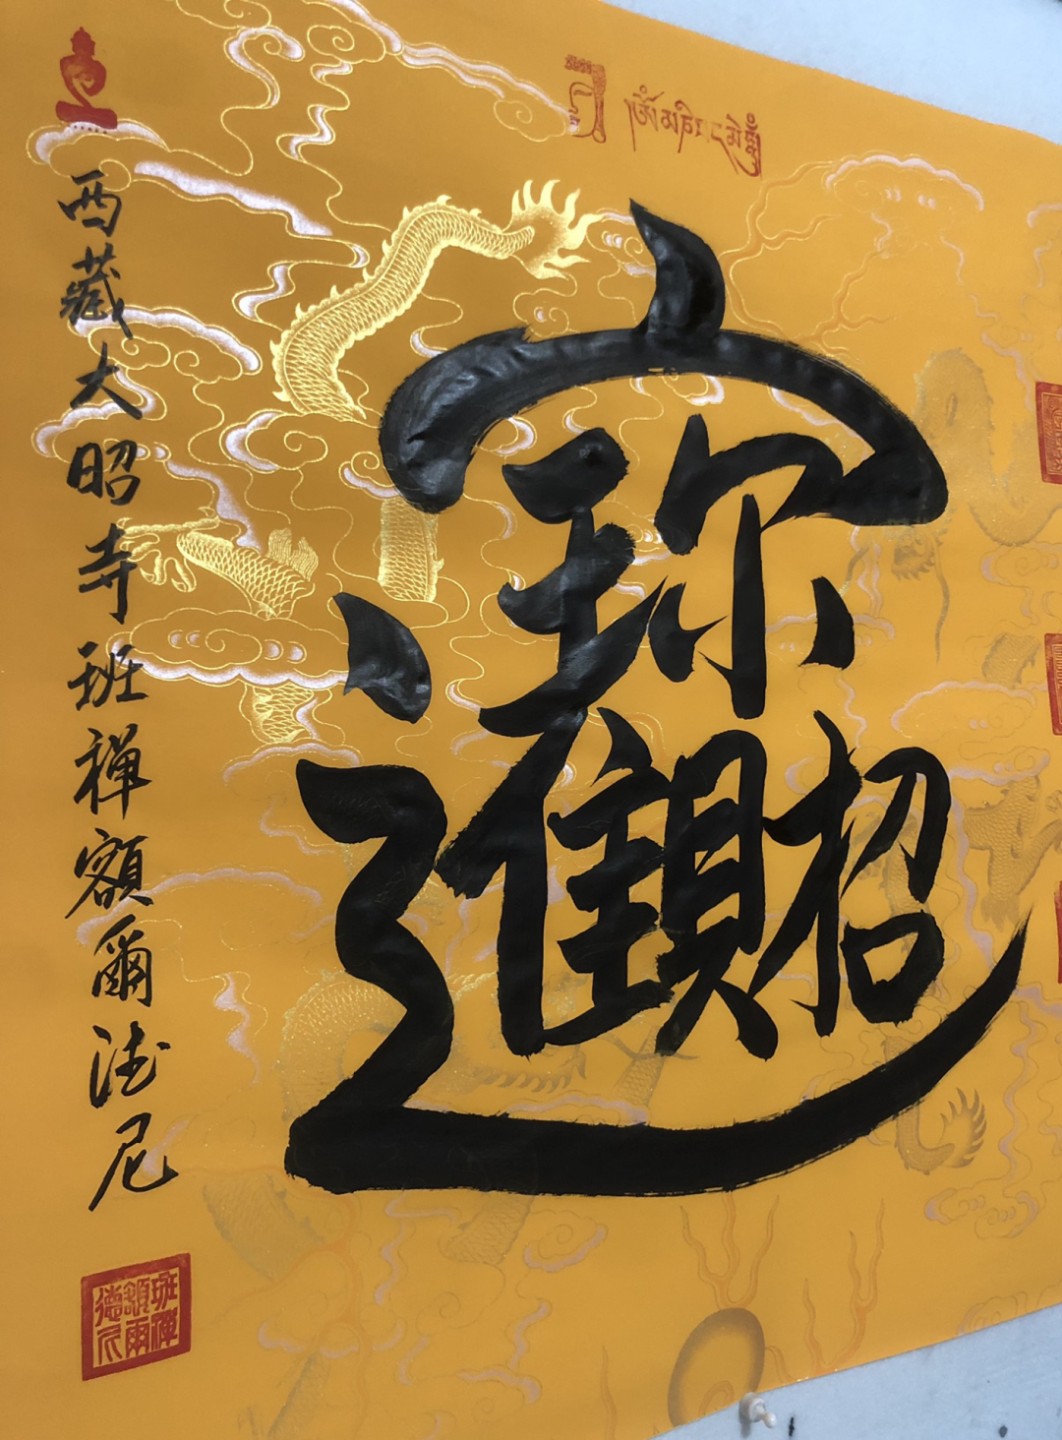 ཨོཾ་མ་ཎི་པད་མེ་ཧཱུྃ
招財進寶
西藏大昭寺班禅額爾德尼
班禪額爾德尼